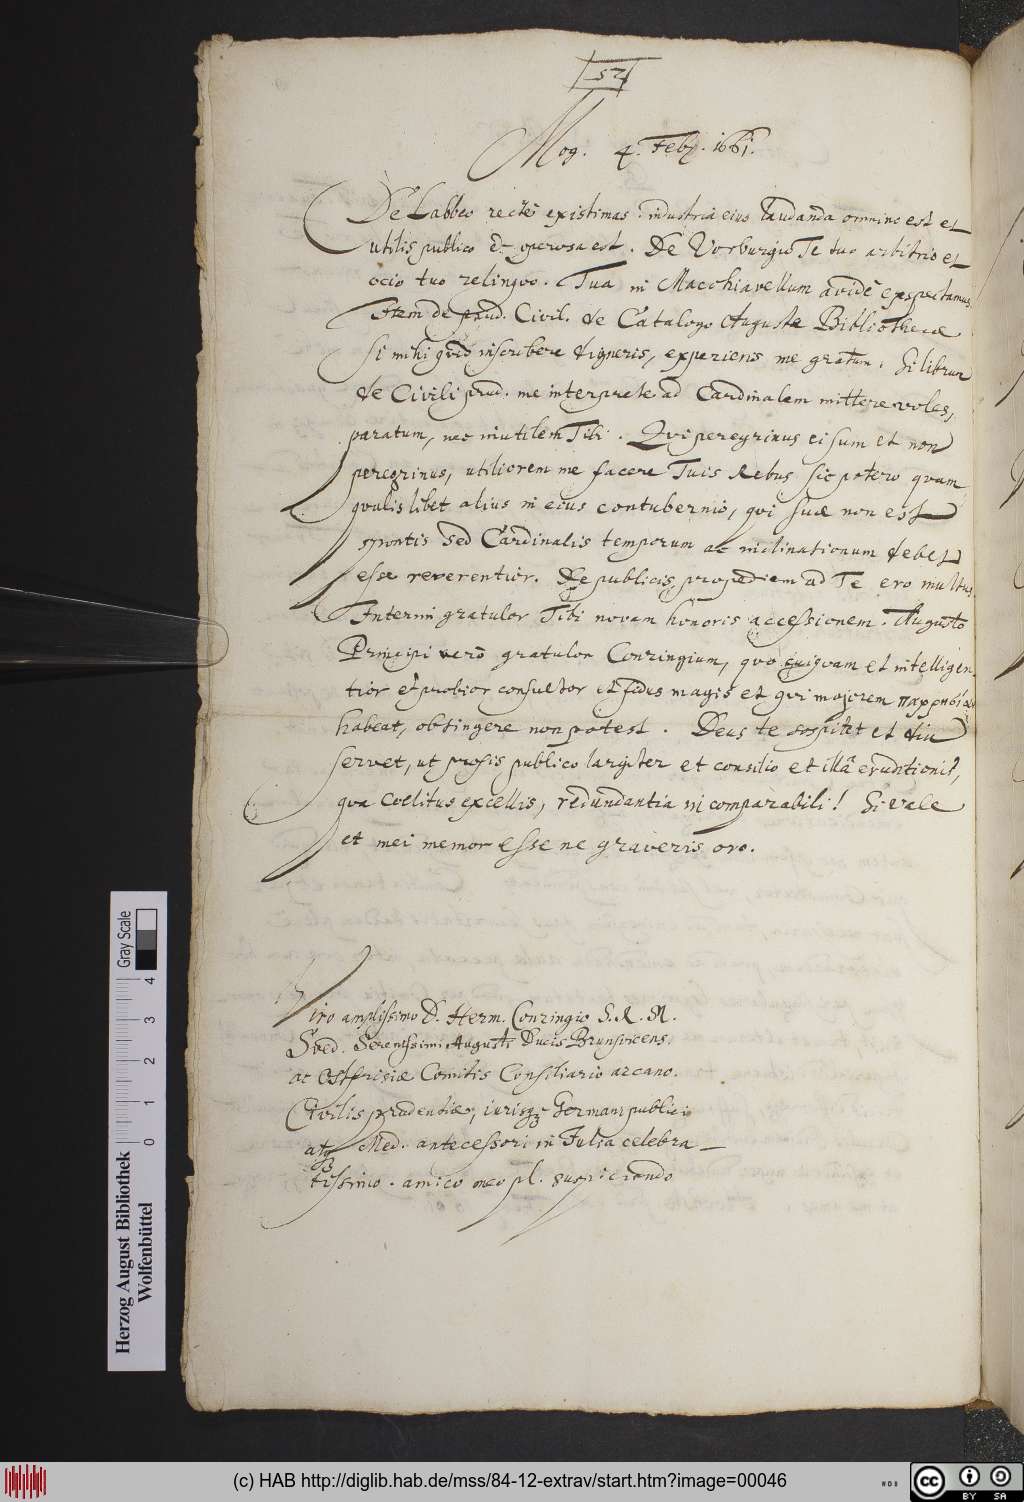 52
Mog. 4. Feb. 1661.
De Labbeo recte existimas. industria eius laudanda omnino est et
utilis publico & operosa est. De Vorburgio Te tuo arbitrio et
ocio tuo relinquo. Tua in Macchiavellum avidè exspectamus
Item de prud. Civil. de Catalogo Augustæ Bibliothecæ
si mihi quid inscribere digneris, experieris me gratum. Si librum
de Civili prud. me interprete ad Cardinalem mittere voles,
paratum, nec inutilem Tibi. Qui peregrinus ei sum et non
peregrinus, utiliorem me facere Tuis Rebus sic potero quam
qualislibet alius in eius contubernio, qui suæ non est
spontis sed Cardinalis temporum ac inclinationum debet
esse reverentior. De publicis propediem ad Te ero multus.
Interim gratulor Tibi novam honoris accessionem. Augusto
Principi verò gratulor Conringium, quo cuiquam et intelligen
tior et probior consultor et fidus magis et qui majorem παρρησίαν
habeat, obtingere non potest. Deus te sospitet et diu
servet, ut prosis publico largiter et consilio et illâ eruditionis,
qua coelitus excellis, redundantia incomparabili! Si vale
et mei memor esse ne graveris oro.
Viro amplissimo D. Herm. Conringio S. R. M.
Sved. Serenissimi Augusti Ducis Brunsvicens.
ac Ostfrisiæ Comitis Consiliario arcano.
Civilis prudentiæ, jurisq3 Germani publici
atq3 Med. antecessori in Julia celebra-
tissimo. amico meo pl. suspiciendo
Herzog August Bibliothek
Wolfenbüttel
0 1 2 3 4
Gray Scale
(c) HAB http://diglib.hab.de/mss/84-12-extrav/start.htm?image=00046
WDB
cc BY SA